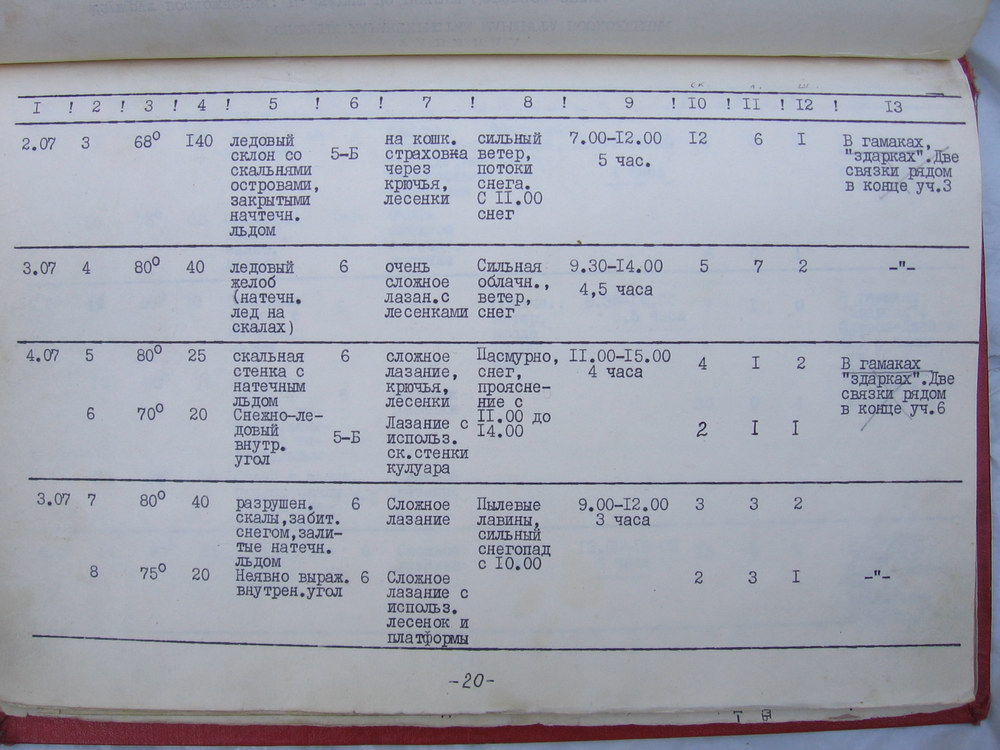 I ! 2 ! 3 ! 4 ! 5 ! 6 ! 7 ! 8 ! 9 ! IO ! II ! I2 ! I3
2.07 3 68° I40 ледовый 5-Б на кошк. сильный 7.00-I2.00 I2 6 I В гамаках,
склон со страховка ветер, 5 час. "здарках".Две
скальными через потоки связки рядом
островами, крючья, снега. в конце уч.3
закрытыми лесенки С II.00
начтечн. снег
льдом
3.07 4 80° 40 ледовый 6 очень Сильная 9.30-I4.00 5 7 2 -"-
желоб сложное облачн., 4,5 часа
(натечн. лазан.с ветер,
лед на лесенками снег
скалах)
4.07 5 80° 25 скальная 6 сложное Пасмурно, II.00-I5.00 4 I 2 В гамаках
стенка с лазание, снег, 4 часа "здарках".Две
натечным крючья, проясне- связки рядом
льдом лесенки ние с в конце уч.6
6 70° 20 Снежно-ле- 5-Б Лазание с II.00 до 2 I I
довый использ. I4.00
внутр. ск.стенки
угол кулуара
3.07 7 80° 40 разрушен. 6 Сложное Пылевые 9.00-I2.00 3 3 2
скалы,забит. лазание лавины, 3 часа
снегом,зали- сильный
тые натечн. снегопад
льдом с I0.00
8 75° 20 Неявно выраж. 6 Сложное 2 3 I -"-
внутрен.угол лазание с
использ.
лесенок и
платформы
-20-